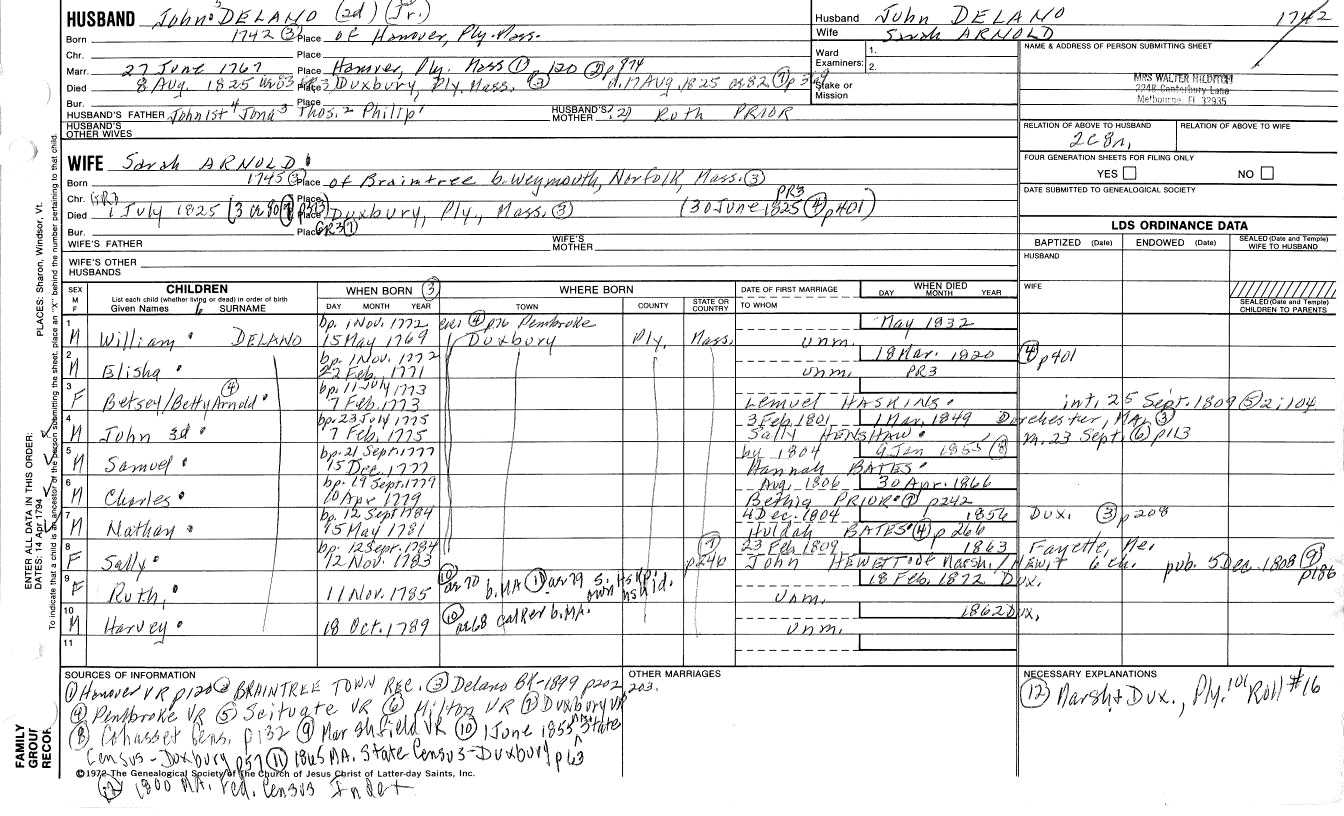 HUSBAND John⁵ DELANO (2d) (Jr.)
Born 1742 ③ Place of Hanover, Ply. Mass.
Chr. Place
Marr. 27 June 1767 Place Hanover, Ply. Mass ① p 120 ②p 874
Died 8 Aug. 1825 Place Duxbury, Ply, Mass. ③ d. 17 Aug. 1825 ar 82 ⑦ p 369
Bur. Place
HUSBAND'S FATHER John 1st⁴ Jona³ Thos.² Philip¹ HUSBAND'S MOTHER Ruth PRIOR
HUSBAND'S OTHER WIVES
Husband John DELANO 1742
Wife Sarah ARNOLD
Ward Examiners: 1.
2.
Stake or Mission
NAME & ADDRESS OF PERSON SUBMITTING SHEET
MRS WALTER HILDITCH
2248 Canterbury Lane
Melbourne, Fl 32935
RELATION OF ABOVE TO HUSBAND RELATION OF ABOVE TO WIFE
2C8n,
FOUR GENERATION SHEETS FOR FILING ONLY
YES NO
DATE SUBMITTED TO GENEALOGICAL SOCIETY
WIFE Sarah ARNOLD
Born 1745 ③ Place of Braintree b. Weymouth, Norfolk, Mass. ③
Chr. Place
Died 1 July 1825 Place Duxbury, Ply., Mass. ③ (30 June 1825 PR3 ④ p401)
Bur. Place GR3 ⑦
WIFE'S FATHER WIFE'S MOTHER
WIFE'S OTHER HUSBANDS
LDS ORDINANCE DATA
BAPTIZED (Date) ENDOWED (Date) SEALED (Date and Temple) WIFE TO HUSBAND
HUSBAND
WIFE
SEALED (Date and Temple) CHILDREN TO PARENTS
SEX M F
CHILDREN
List each child (whether living or dead) in order of birth
Given Names 6 SURNAME
WHEN BORN ③
DAY MONTH YEAR
WHERE BORN
TOWN COUNTY STATE OR COUNTRY
DATE OF FIRST MARRIAGE
TO WHOM
WHEN DIED
DAY MONTH YEAR
1 M William DELANO bp. 1 Nov. 1772 ④ p76 Pembroke
15 May 1769 Duxbury Ply. Mass. unm. May 1832
2 M Elisha bp. 1 Nov. 1772
22 Feb. 1771 unm. 18 Mar. 1820 PR3 ④ p401
3 F Betsey/Betty Arnold ④ bp. 11 July 1773
7 Feb. 1773 Lemuel HASKINS int. 25 Sept. 1809 ⑤ 2:104
4 M John 3d bp. 23 July 1775
7 Feb. 1775 3 Feb 1801 1 Mar. 1849 Dorchester, MA, ③
Sally HENSHAW m. 23 Sept. ⑥ p113
5 M Samuel bp. 21 Sept. 1777
15 Dec. 1777 by 1804 9 Jan 1855 ⑧
Hannah BATES
6 M Charles bp. 19 Sept. 1779
10 Apr 1779 Aug. 1806 30 Apr. 1866
Bethia PRIOR ⑦ p242
7 M Nathan bp. 12 Sept 1784
15 May 1781 4 Dec. 1804 1856 Dux. ③ p208
Huldah BATES ④ p 266
8 F Sally bp. 12 Sept. 1784
12 Nov. 1783 ⑦ p246 23 Feb 1809 1863 Fayette, Me.
John HEWETT of Marsh./HEWIT 6 ch. pub. 5 Dec. 1808 ⑨ p186
9 F Ruth, 11 Nov. 1785 ⑩ ar 70 b. MA ⑪ ar 79 unm. 18 Feb. 1872 Dux.
10 M Harvey 18 Oct. 1789 ⑩ ar 68 calker b. MA. unm. 1862 Dux,
11
SOURCES OF INFORMATION
① Hanover VR p120 ② BRAINTREE TOWN REC. ③ Delano BK-1899 p202, 203.
④ Pembroke VR ⑤ Scituate VR ⑥ Milton VR ⑦ Duxbury VR
⑧ Cohasset Gens. p132 ⑨ Marshfield VR ⑩ 1 June 1855 MA State
Census-Duxbury p57 ⑪ 1865 MA. State Census-Duxbury p63
⑫ 1800 MA. Fed. Census Index
OTHER MARRIAGES
NECESSARY EXPLANATIONS
⑫ Marsh. + Dux., Ply. 101 Roll #16
©1972 The Genealogical Society of The Church of Jesus Christ of Latter-day Saints, Inc.
FAMILY GROUP RECOR
ENTER ALL DATA IN THIS ORDER:
DATES: 14 Apr 1794
PLACES: Sharon, Windsor, Vt.
To indicate that a child is an ancestor of the person submitting the sheet, place an "X" behind the number pertaining to that child.